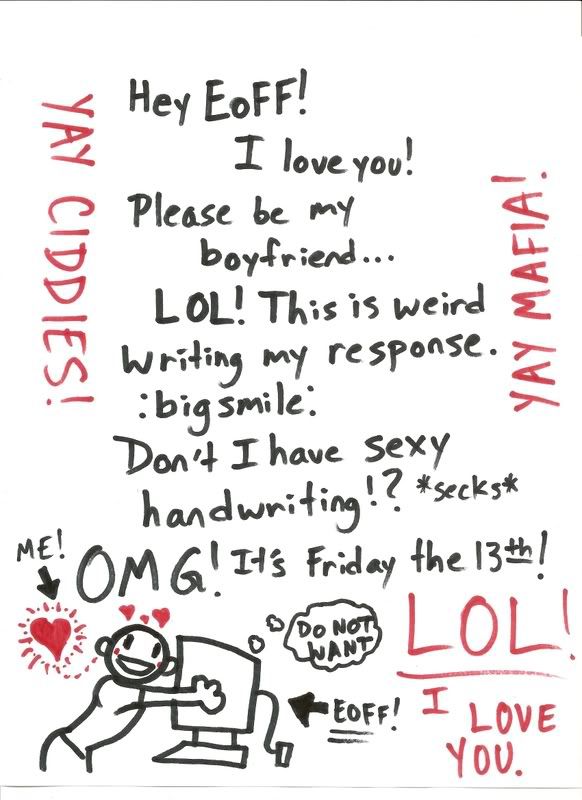 Hey EoFF!
I love you!
Please be my
boyfriend...
LOL! This is weird
writing my response.
:bigsmile:
Don't I have sexy
handwriting!? *secks*
OMG! It's Friday the 13th!
YAY CIDDIES!
YAY MAFIA!
ME!
DO NOT
WANT
EOFF!
LOL!
I LOVE
YOU.